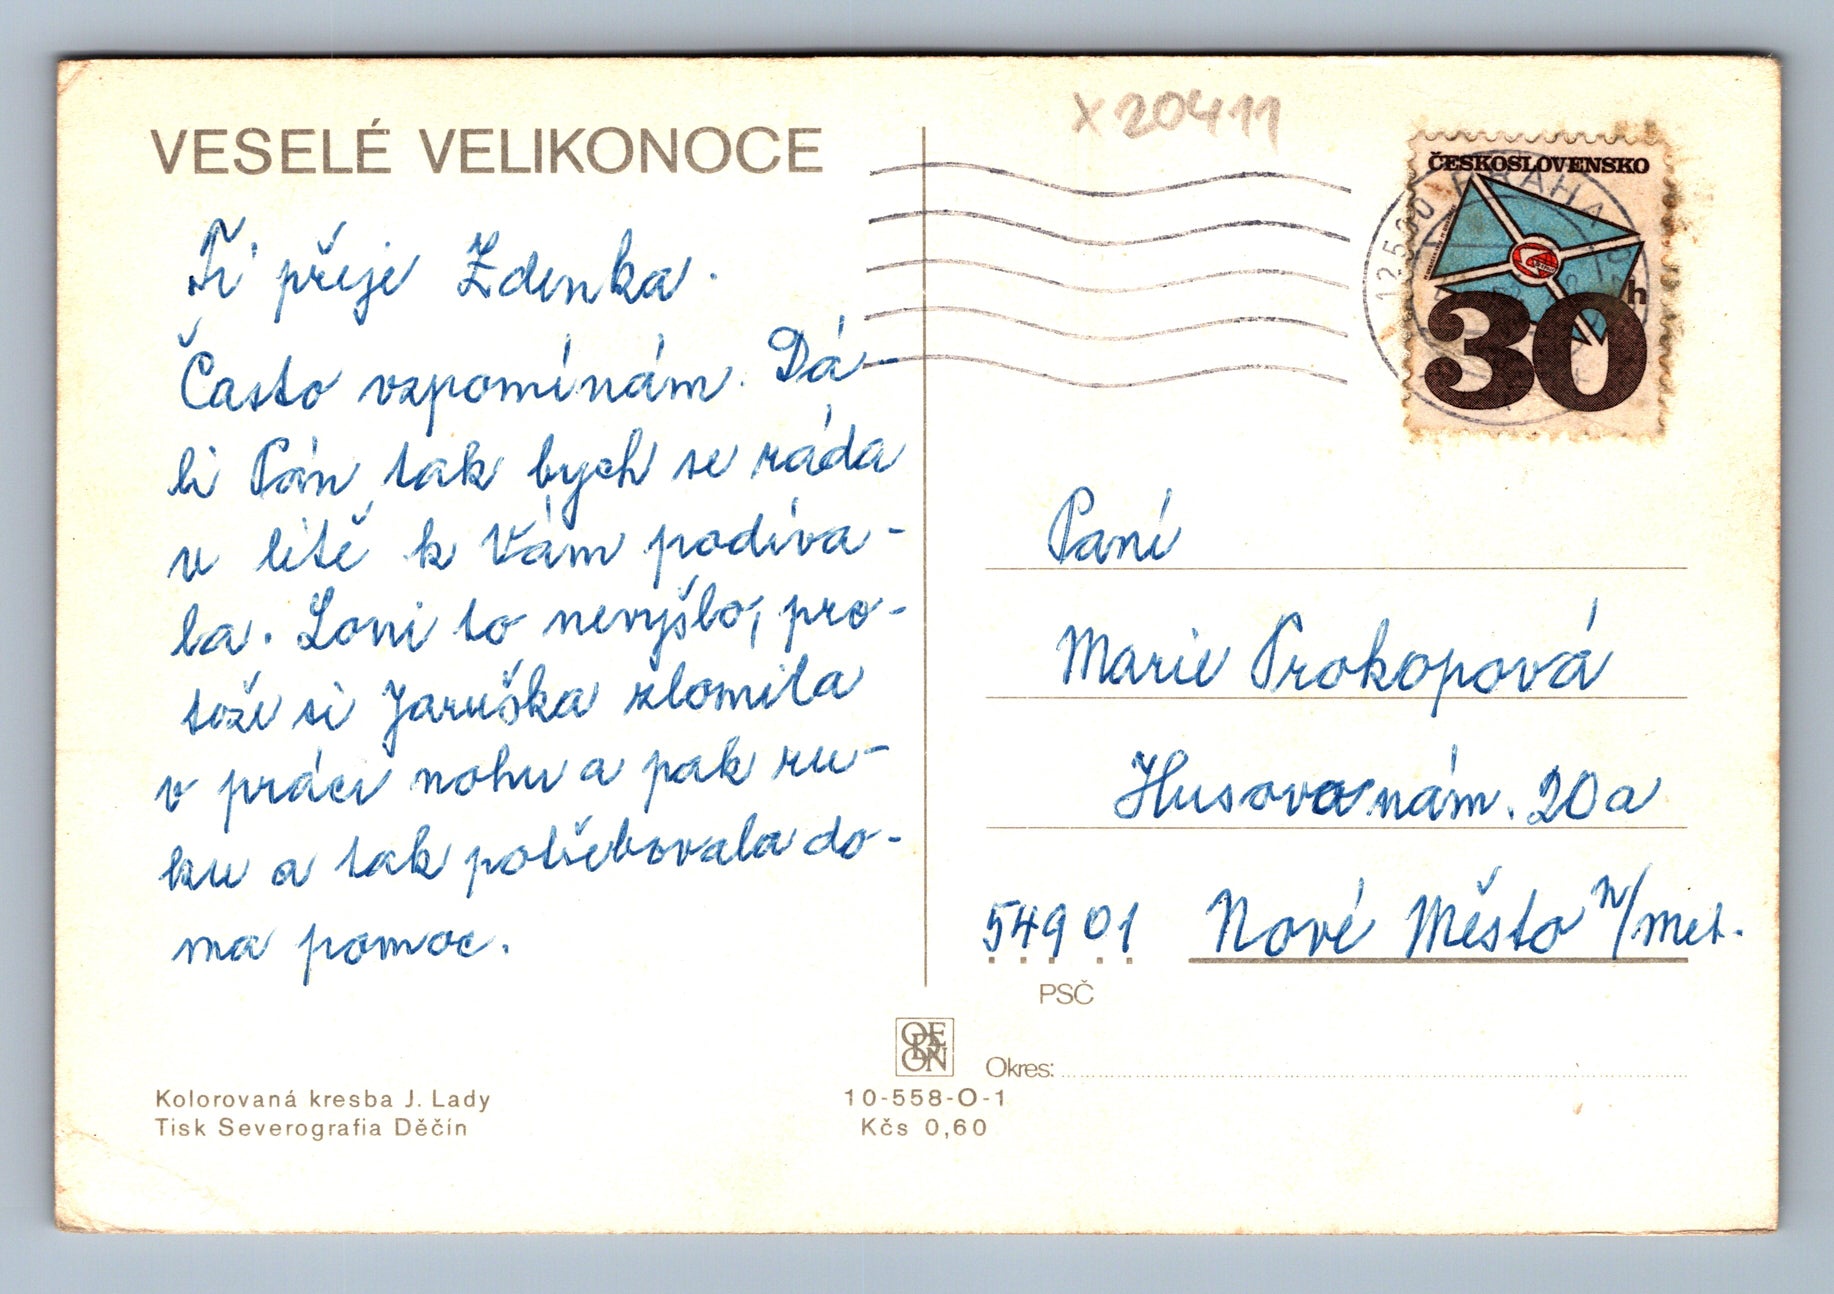 VESELÉ VELIKONOCE
Ti přeje Zdenka.
Často vzpomínám. Dá-
li Pán, tak bych se ráda
v létě k Vám podíva-
la. Loni to nevyšlo, pro-
tože si Jaruška zlomila
v práci nohu a pak ru-
ku a tak potřebovala do-
ma pomoc.
Kolorovaná kresba J. Lady
Tisk Severografia Děčín
x 20411
ČESKOSLOVENSKO
30h
PRAHA
Paní
Marie Prokopová
Husova nám. 20a
549 01 Nové Město n/Met.
PSČ
ODEON
Okres:
10-558-O-1
Kčs 0,60